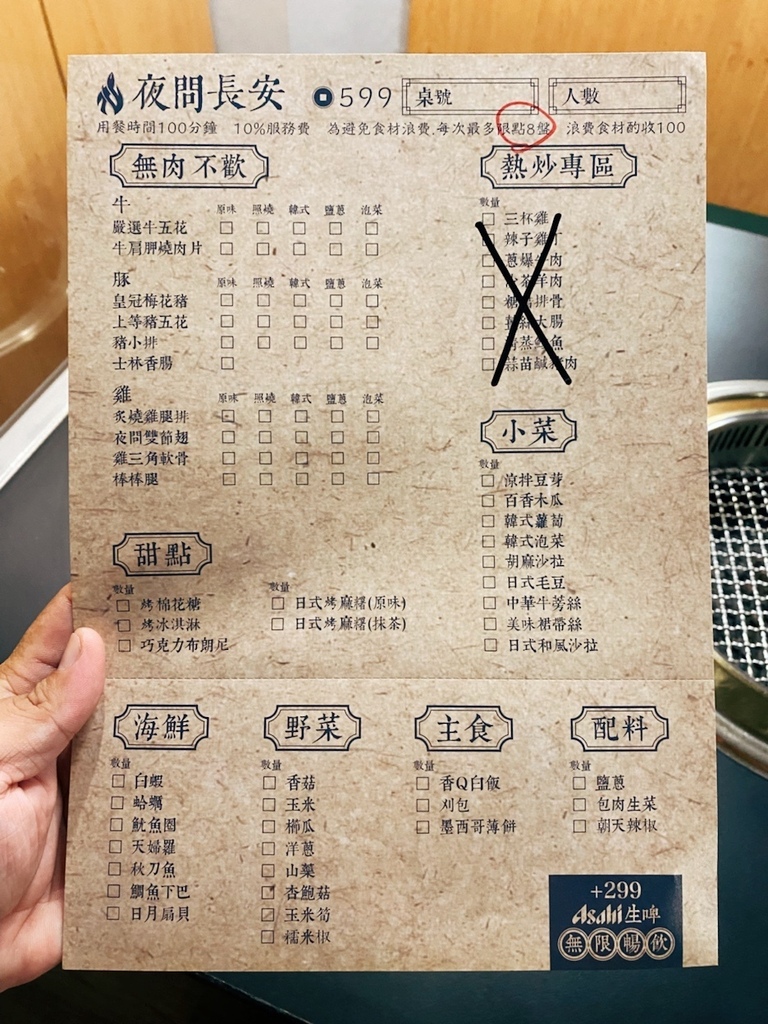 夜問長安 599 桌號 人數
用餐時間100分鐘 10%服務費 為避免食材浪費.每次最多限點8盤 浪費食材酌收100
無肉不歡
牛 原味 照燒 韓式 鹽蔥 泡菜
嚴選牛五花
牛肩胛燒肉片
豚 原味 照燒 韓式 鹽蔥 泡菜
皇冠梅花豬
上等豬五花
豬小排
士林香腸
雞 原味 照燒 韓式 鹽蔥 泡菜
炙燒雞腿排
夜問雙節翅
雞三角軟骨
棒棒腿
熱炒專區
數量
三杯雞
辣子雞丁
蔥爆牛肉
羊肉
排骨
大腸
蒜苗鹹豬肉
小菜
數量
涼拌豆芽
百香木瓜
韓式蘿蔔
韓式泡菜
胡麻沙拉
日式毛豆
中華牛蒡絲
美味裙帶絲
日式和風沙拉
甜點
數量
烤棉花糖
烤冰淇淋
巧克力布朗尼
數量
日式烤麻糬(原味)
日式烤麻糬(抹茶)
海鮮
數量
白蝦
蛤蠣
魷魚圈
天婦羅
秋刀魚
鯛魚下巴
日月扇貝
野菜
數量
香菇
玉米
櫛瓜
洋蔥
山藥
杏鮑菇
玉米筍
糯米椒
主食
數量
香Q白飯
刈包
墨西哥薄餅
配料
數量
鹽蔥
包肉生菜
朝天辣椒
+299
Asahi生啤
無限暢飲